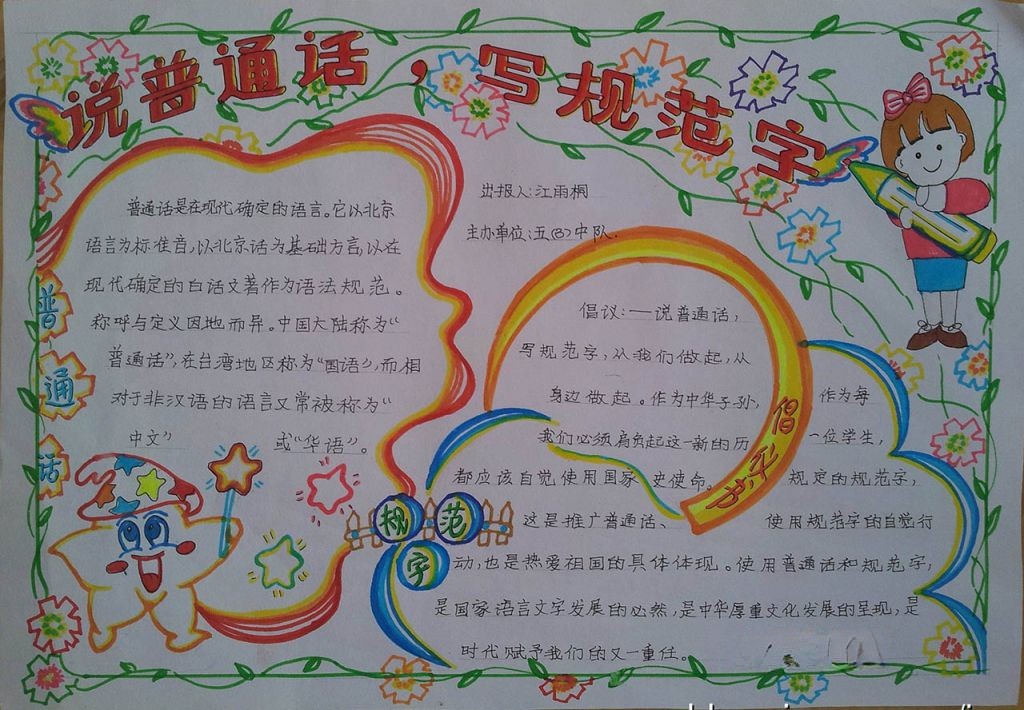 说普通话，写规范字
出报人:江雨桐
主办单位:五(8)中队.
普通话是在现代确定的语言。它以北京
语言为标准音,以北京话为基础方言,以在
现代确定的白话文著作为语法规范。
称呼与定义因地而异。中国大陆称为“
普通话”,在台湾地区称为“国语”,而相
对于非汉语的语言又常被称为“
中文” 或“华语”。
普通话
规范字
倡议书
倡议:一说普通话,
写规范字,从我们做起,从
身边做起。作为中华子孙, 作为每
我们必须肩负起这一新的历 一位学生,
都应该自觉使用国家 史使命。 规定的规范字,
这是推广普通话、 使用规范字的自觉行
动,也是热爱祖国的具体体现。使用普通话和规范字,
是国家语言文字发展的必然,是中华厚重文化发展的呈现,是
时代赋予我们的又一重任。